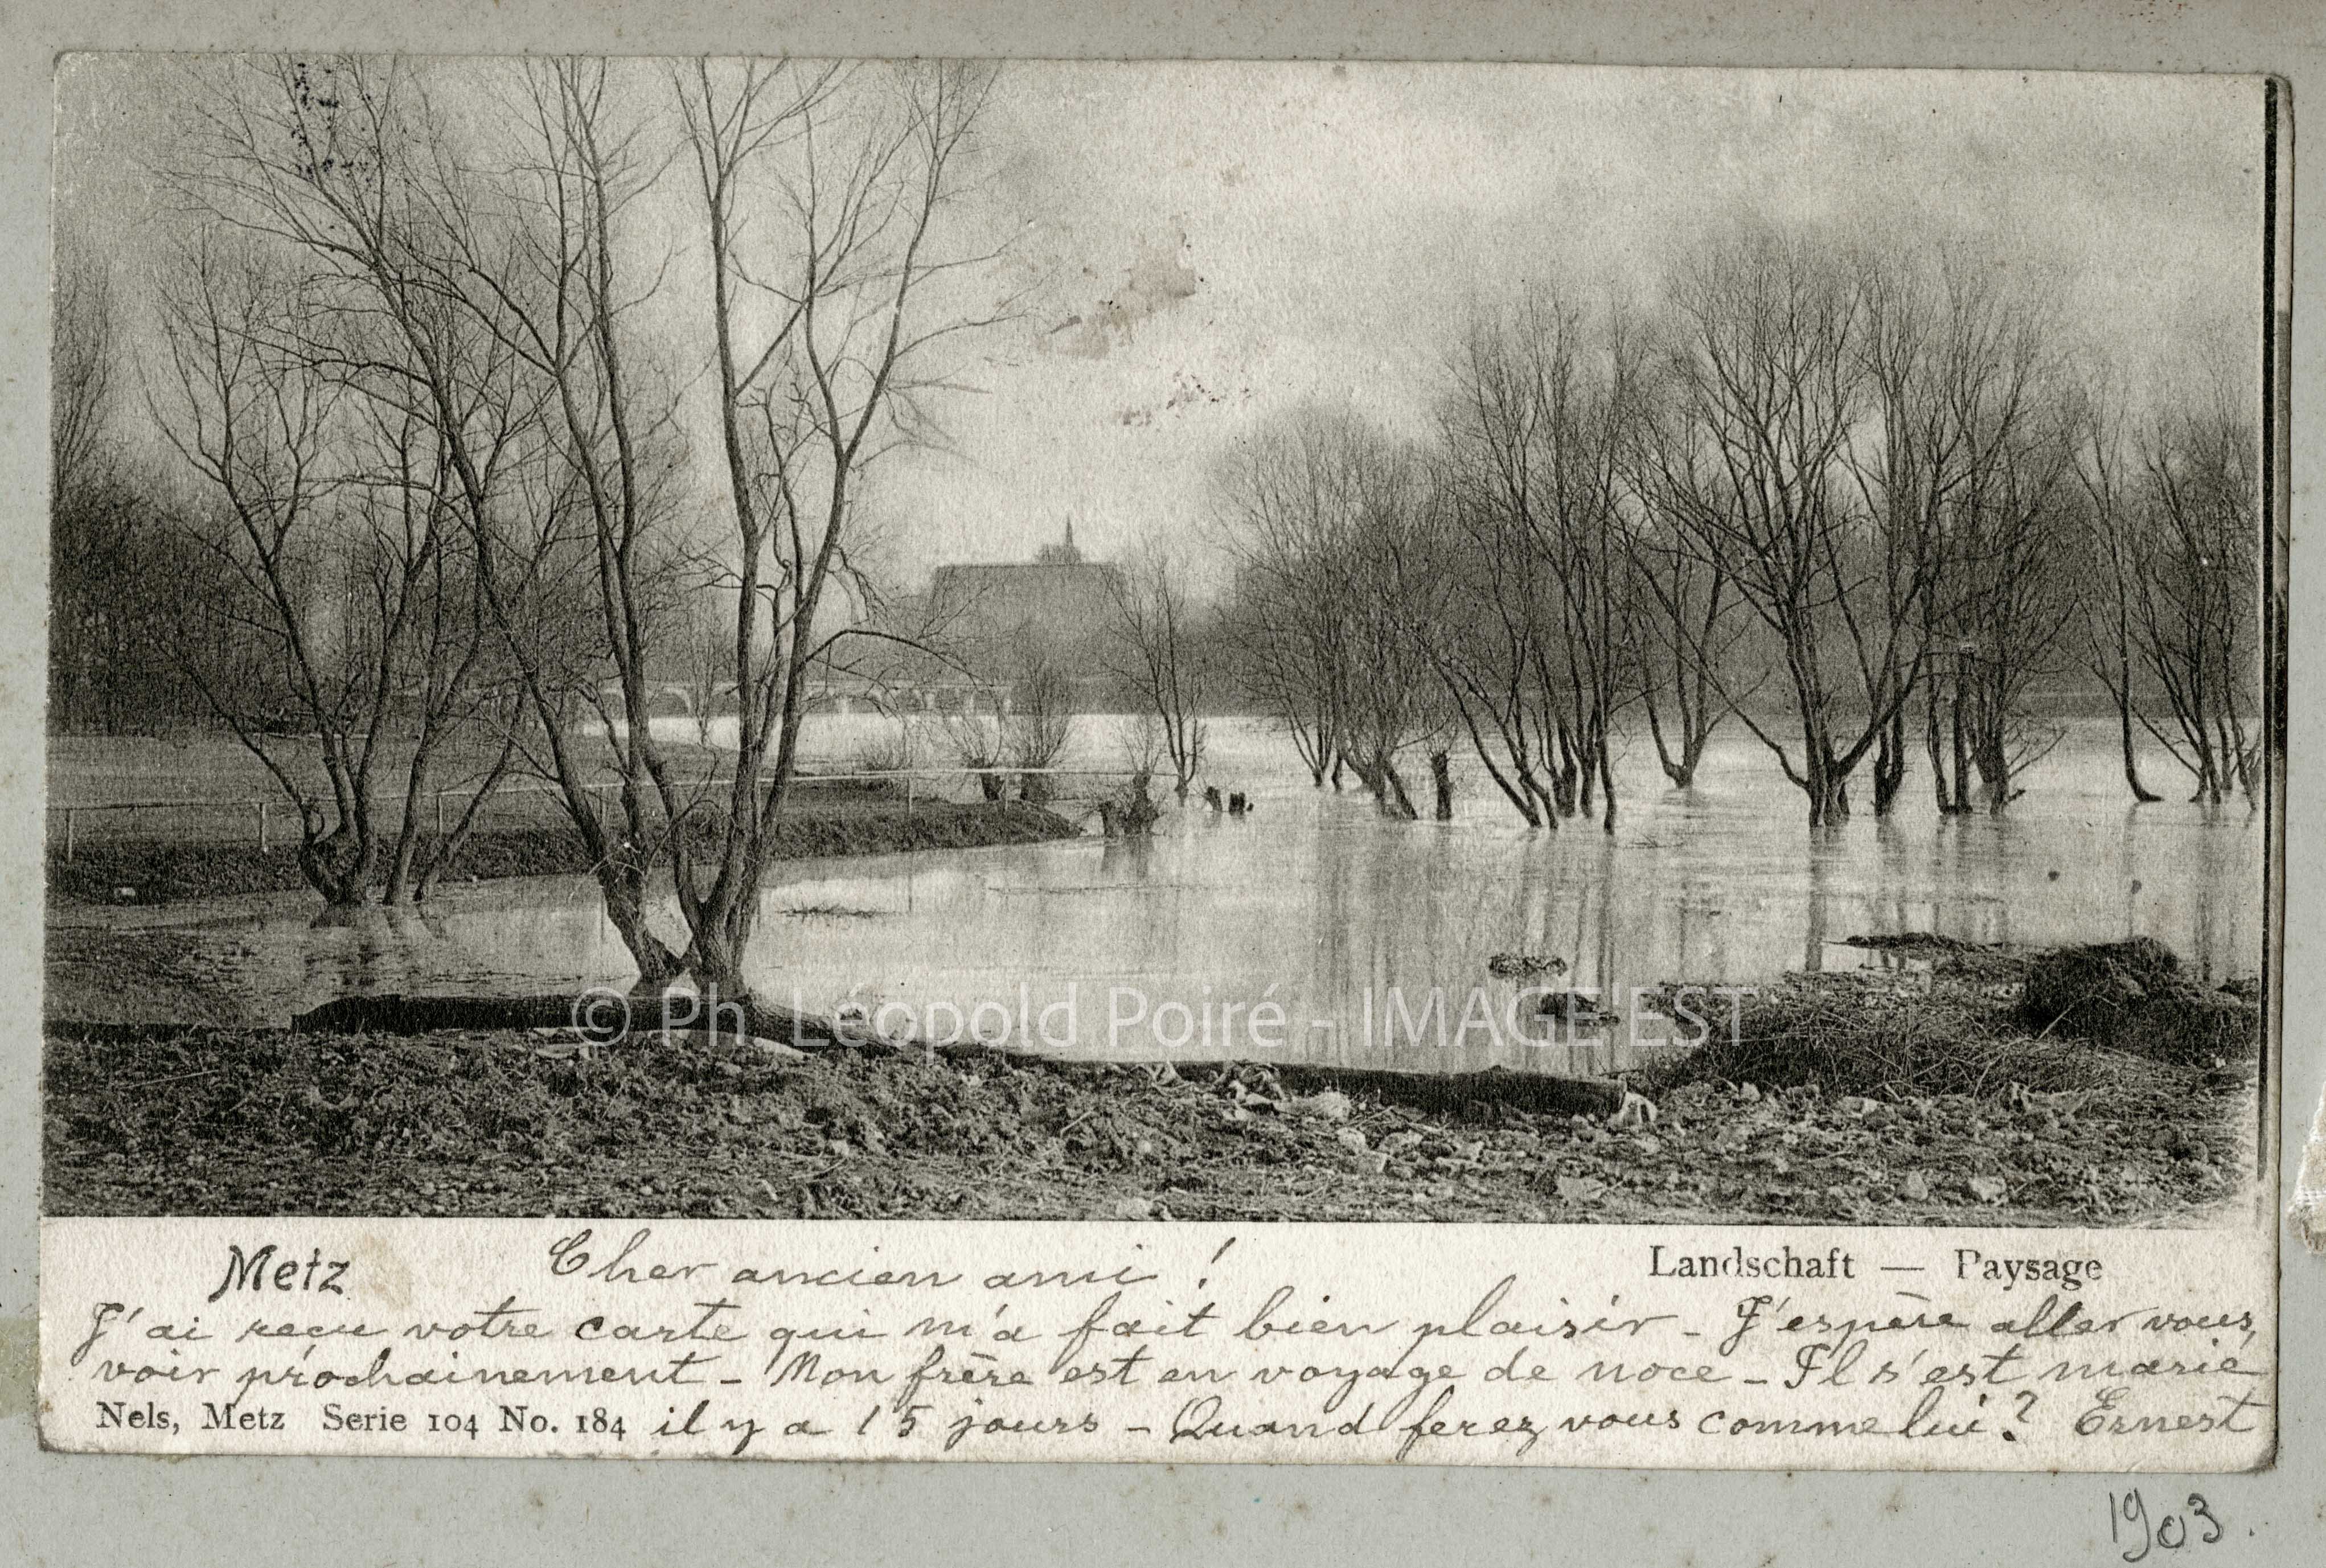 © Ph. Léopold Poiré - IMAGE'EST
Metz Cher ancien ami ! Landschaft — Paysage
J'ai reçu votre carte qui m'a fait bien plaisir - J'espère aller vous
voir prochainement - Mon frère est en voyage de noce - Il s'est marié
Nels, Metz Serie 104 No. 184 il y a 15 jours - Quand ferez vous comme lui ? Ernest
1903.